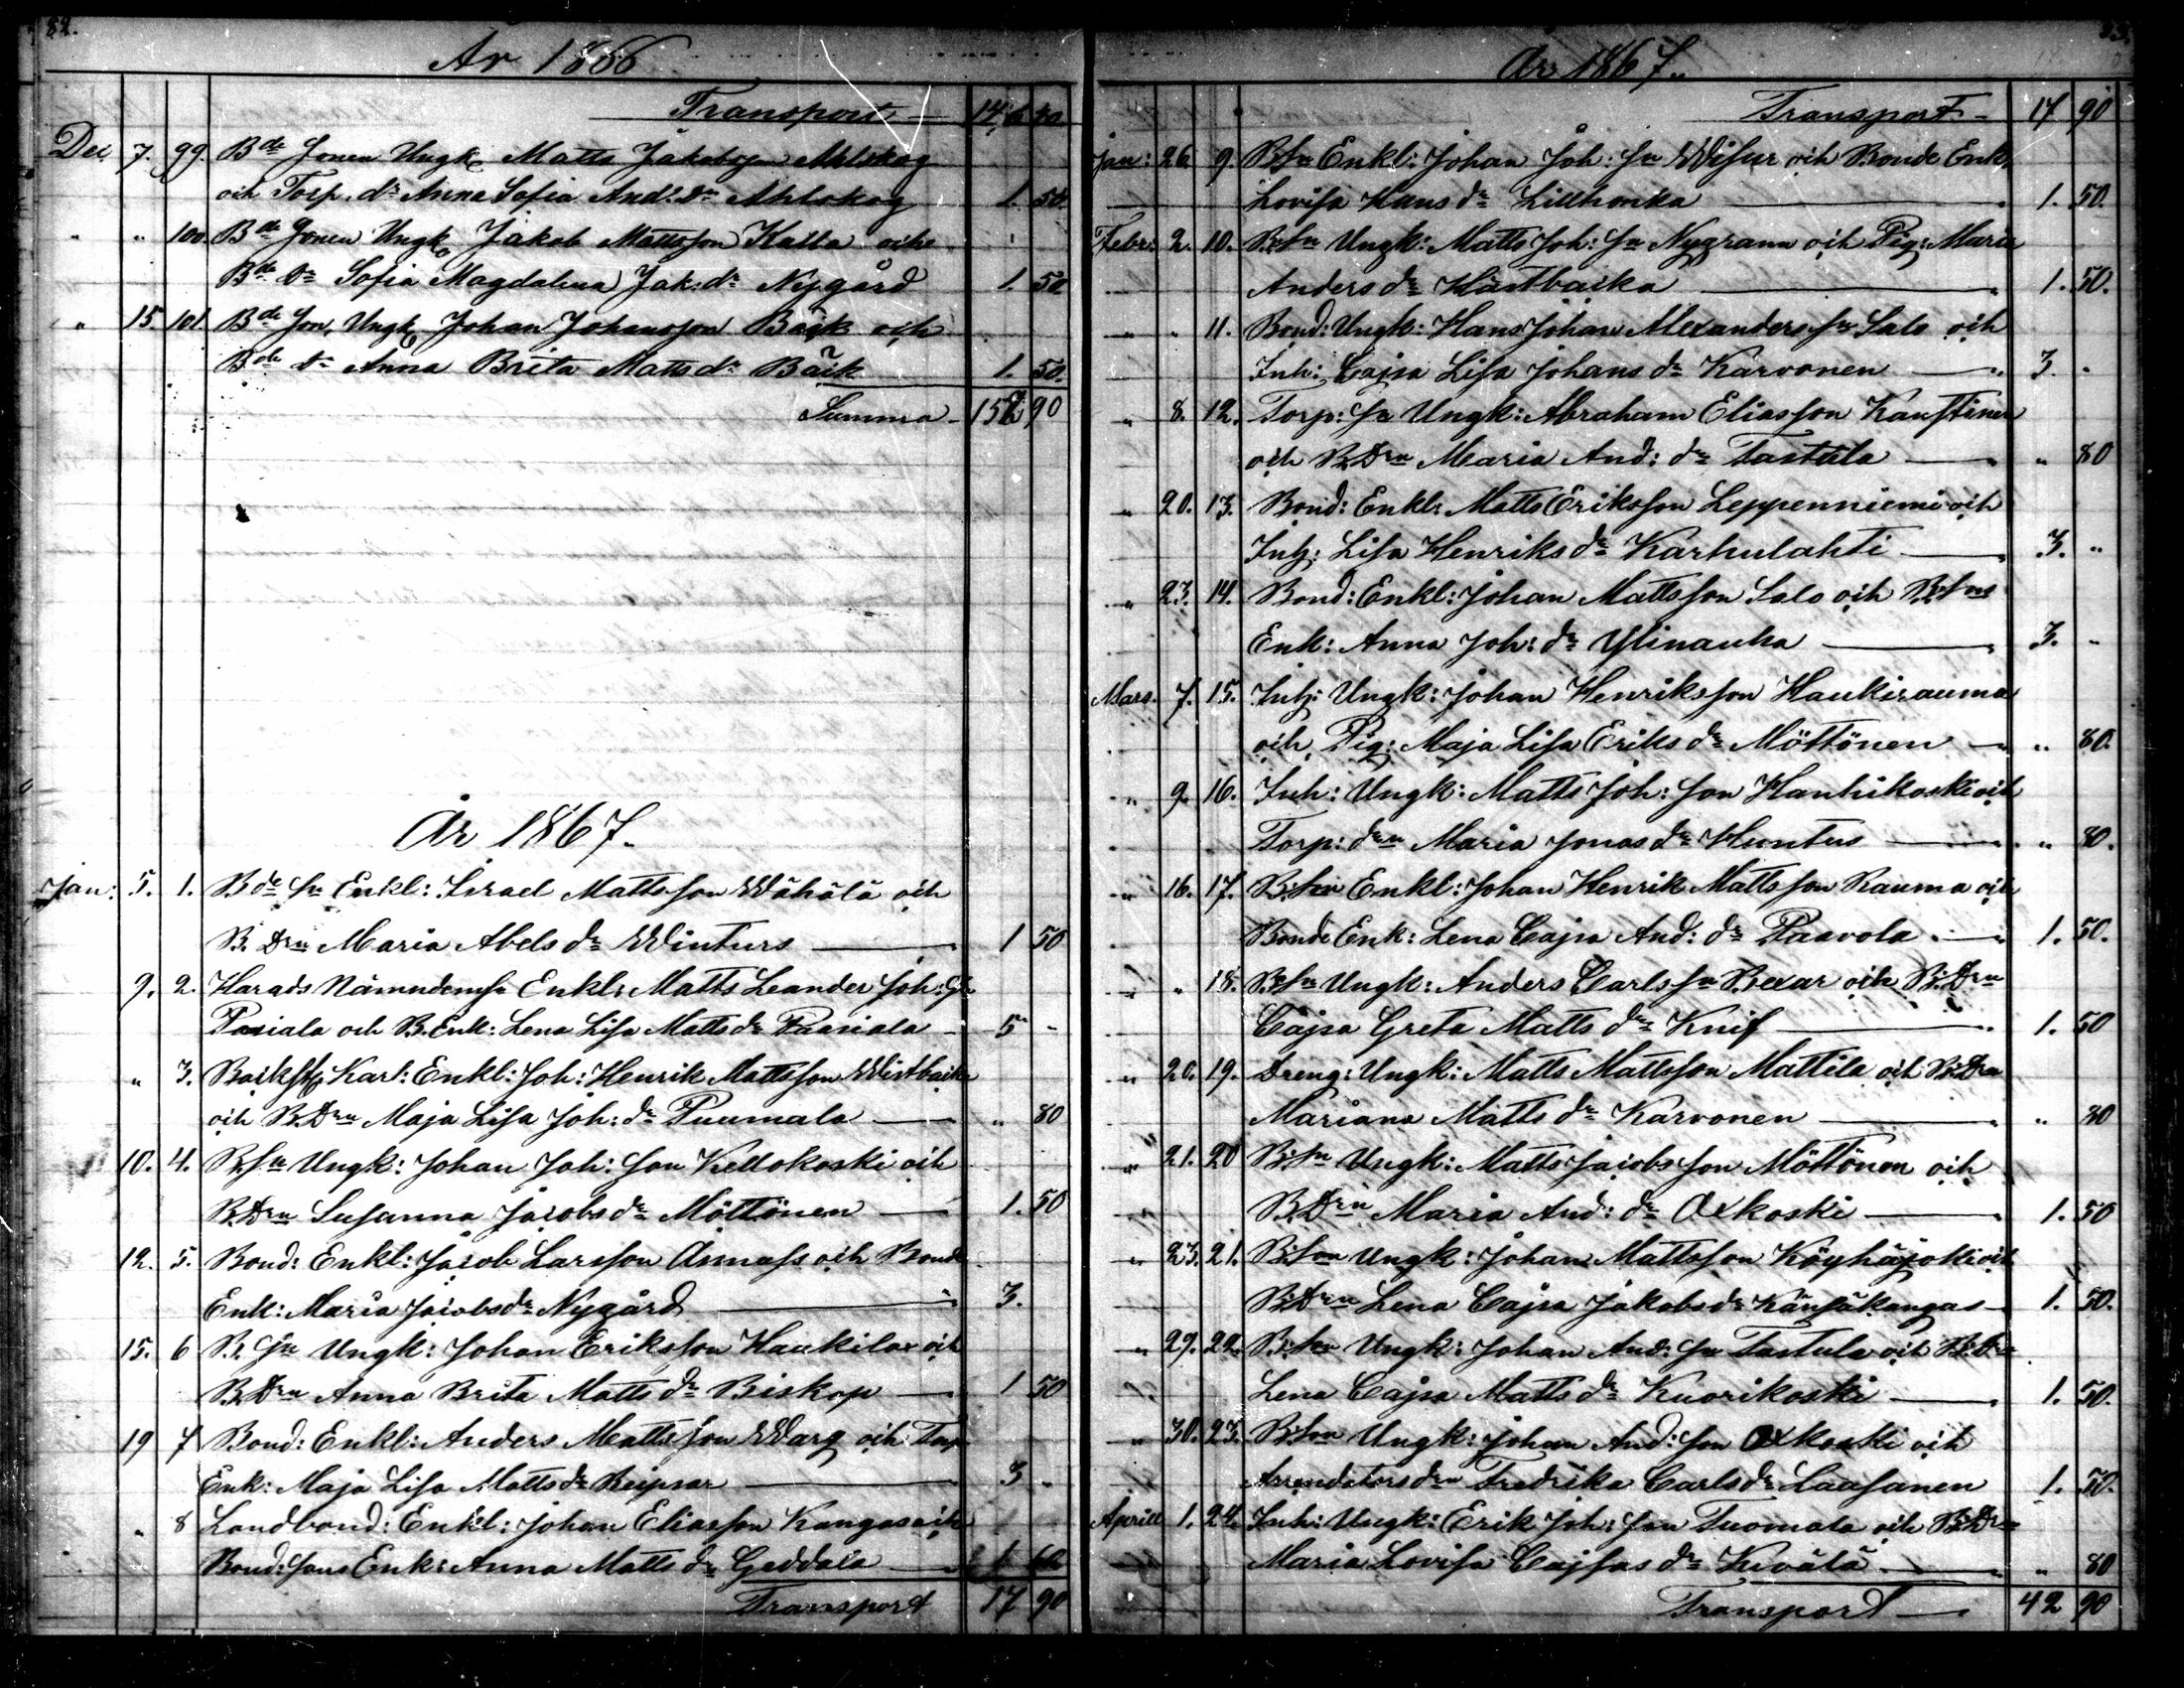 82.
År 1866
Transport — 146 40
Dec. 7. 99. Bde Sonen Ungk. Matts Jakobsson Ahlskog
och Torp. dr Anna Sofia And. dr Ahlskog 1. 50.
" " 100. Bde Sonen Ungk. Jakob Mattsson Kalla och
Bde dr Sofia Magdalena Jak: dr Nygård 1. 50.
" 15. 101 Bde Son. Ungk. Johan Johansson Bäck och
Bde dr Anna Brita Matts dr Bäck 1. 50.
Summa — 152 90
År 1867.
Jan: 5. 1. Bde Sn Enkl: Israel Mattsson Wähälä och
B. Drn Maria Abels dr Winturs — 1 50
9. 2. Härads Nämndem Enkl: Matts Leander Joh: Sn
Pasiala och B. Enk: Lena Lisa Matts dr Pasiala — 5 -
" 3. Karl: Enkl: Joh: Henrik Mattsson Wistbacka
och B. Drn Maja Lisa Joh: dr Puumala — " 80
10. 4. B. Sn Ungk: Johan Joh: Son Kellokoski och
B. Drn Susanna Jacobs dr Möttönen — 1. 50
12. 5. Bond: Enkl: Jacob Larsson Annass och Bonde
Enk: Maria Jacobs dr Nygård — 3.
15. 6 B. Sn Ungk: Johan Eriksson Haukilax och
B. Drn Anna Brita Matts dr Biskop — 1 50
19 7 Bond: Enkl: Anders Mattsson Warg och Torp
Enk: Maja Lisa Matts dr Reipsar — 3 -
" 8 Landbond: Enkl: Johan Eliasson Kangas och
Bond: Sons Enk: Anna Matts dr Geddala — 1 60
Transport 17 90
År 1867.
Transport — 17 90
Jan: 26 9. B. Sn Enkl: Johan Joh: Sn Wisur och Bonde Enk,
Lovisa Hans dr Lillhonka — 1. 50.
Febr: 2. 10. B. Sn Ungk: Matts Joh: Sn Nygrann och Pig: Maria
Anders dr Hästbacka — 1. 50.
" " 11. Bond: Ungk: Hans Johan Alexanders Sn Salo och
Inh: Cajsa Lisa Johans dr Karvonen — 3. -
" 8. 12. Torp: Sn Ungk: Abraham Eliasson Kaustinen
och B. Drn Maria And: dr Tastula — " 80
" 20. 13. Bond: Enkl: Matts Eriksson Leppenniemi och
Inh: Lisa Henriks dr Karhulahti — 3. "
" 23. 14. Bond: Enkl: Johan Mattsson Salo och B. Sons
Enk: Anna Joh: dr Ylinauha — 3. -
Mars. 7. 15. Inh: Ungk: Johan Henriksson Haukirauma
och Pig: Maja Lisa Eriks dr Möttönen — " 80.
" 9. 16. Inh: Ungk: Matts Joh: Son Hanhikoski och
Torp: drn Maria Jonas dr Huntus — " 80.
" 16. 17. B. Sn Enkl: Johan Henrik Mattsson Rauma och
Bonde Enk: Lena Cajsa And: dr Paavola — 1. 50.
" " 18. B. Sn Ungk: Anders Carls Sn Bexar och B: Drn
Cajsa Greta Matts dr Knif — 1. 50
" 20. 19. Dreng: Ungk: Matts Mattsson Mattila och B: Drn
Mariana Matts dr Karvonen — " 80
" 21. 20 B: Sn Ungk: Matts Jacobsson Möttönen och
B. Drn Maria And: dr Oxkoski — 1. 50
" 23. 21. B: Son Ungk: Johan Mattsson Köyhäjoki och
B: Drn Lena Cajsa Jakobs dr Känsäkangas — 1. 50.
" 29. 22. B: Sn Ungk: Johan And: Sn Tastula och B: Drn
Lena Cajsa Matts dr Kuorikoski — 1. 50.
" 30. 23. B: Son Ungk: Johan And: Son Oxkoski och
Arrendators drn Fredrika Carls dr Laasanen 1. 50.
Aprill 1. 24. Inh: Ungk: Erik Joh: Son Tuomala och B: Drn
Maria Lovisa Cajsas dr Kivälä — " 80
Transport — 42 90